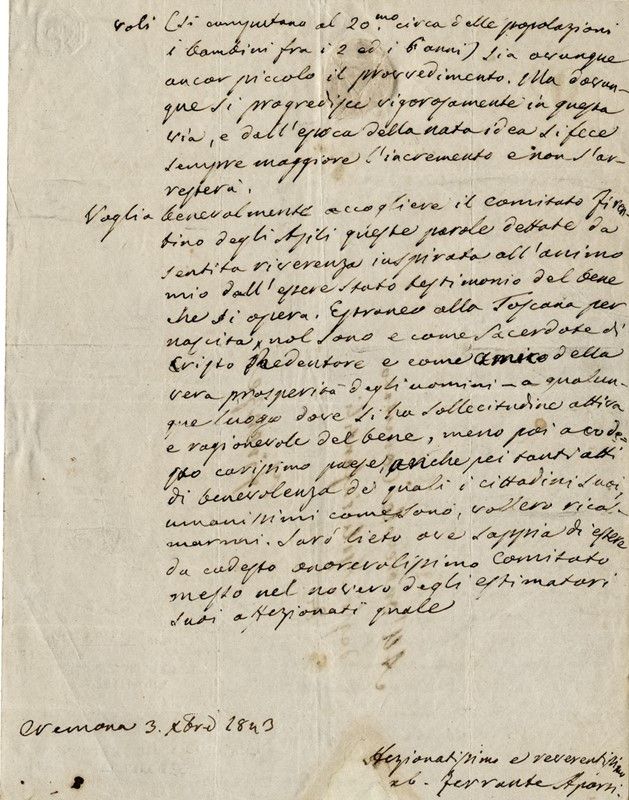 voli (si computano al 20.mo circa delle popolazioni
i bambini fra i 2 ed i 6 anni) sia ovunque
ancor piccolo il provvedimento. Ma dovun-
que si progredisce vigorosamente in questa
via, e dall'epoca della nata idea si fece
sempre maggiore l'incremento e non s'ar-
resterà.
Voglia benevolmente accogliere il Comitato Fioren-
tino degli Asili queste parole dettate da
sentita riverenza inspirata all'animo
mio dall'essere stato testimonio del bene
che si opera. Estraneo alla Toscana per
nascita, nol sono e come Sacerdote di
Cristo Redentore e come amico della
vera prosperità degli uomini – a qualun-
que luogo dove si ha sollecitudine attiva
e ragionevole del bene, meno poi a code-
sto carissimo paese, anche pei tanti atti
di benevolenza de' quali i cittadini suoi,
umanissimi come sono, vollero ricol-
marmi. Sarò lieto ove sappia di essere
da codesto onorevolissimo Comitato
messo nel novero degli estimatori
suoi affezionati quale
Cremona 3. Xbre 1843
Affezionatissimo e reverentissimo
ab. Ferrante Aporti.